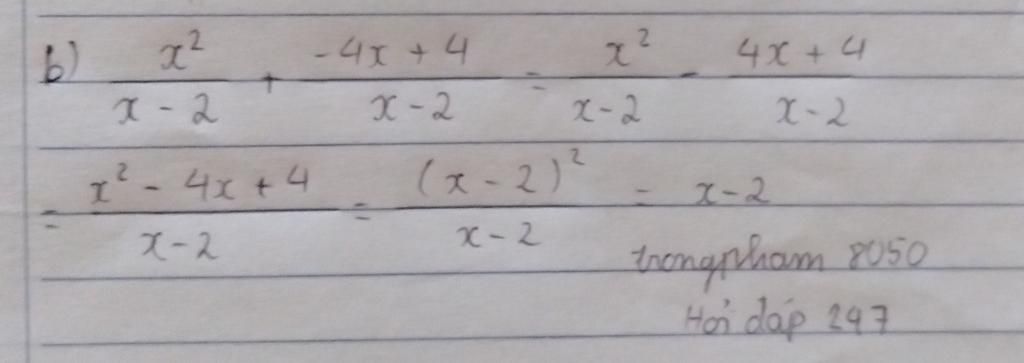 b) x²/(x - 2) + (-4x + 4)/(x - 2) = x²/(x - 2) - (4x + 4)/(x - 2)
= (x² - 4x + 4)/(x - 2) = (x - 2)²/(x - 2) = x - 2
trongpham 8050
Hỏi đáp 247